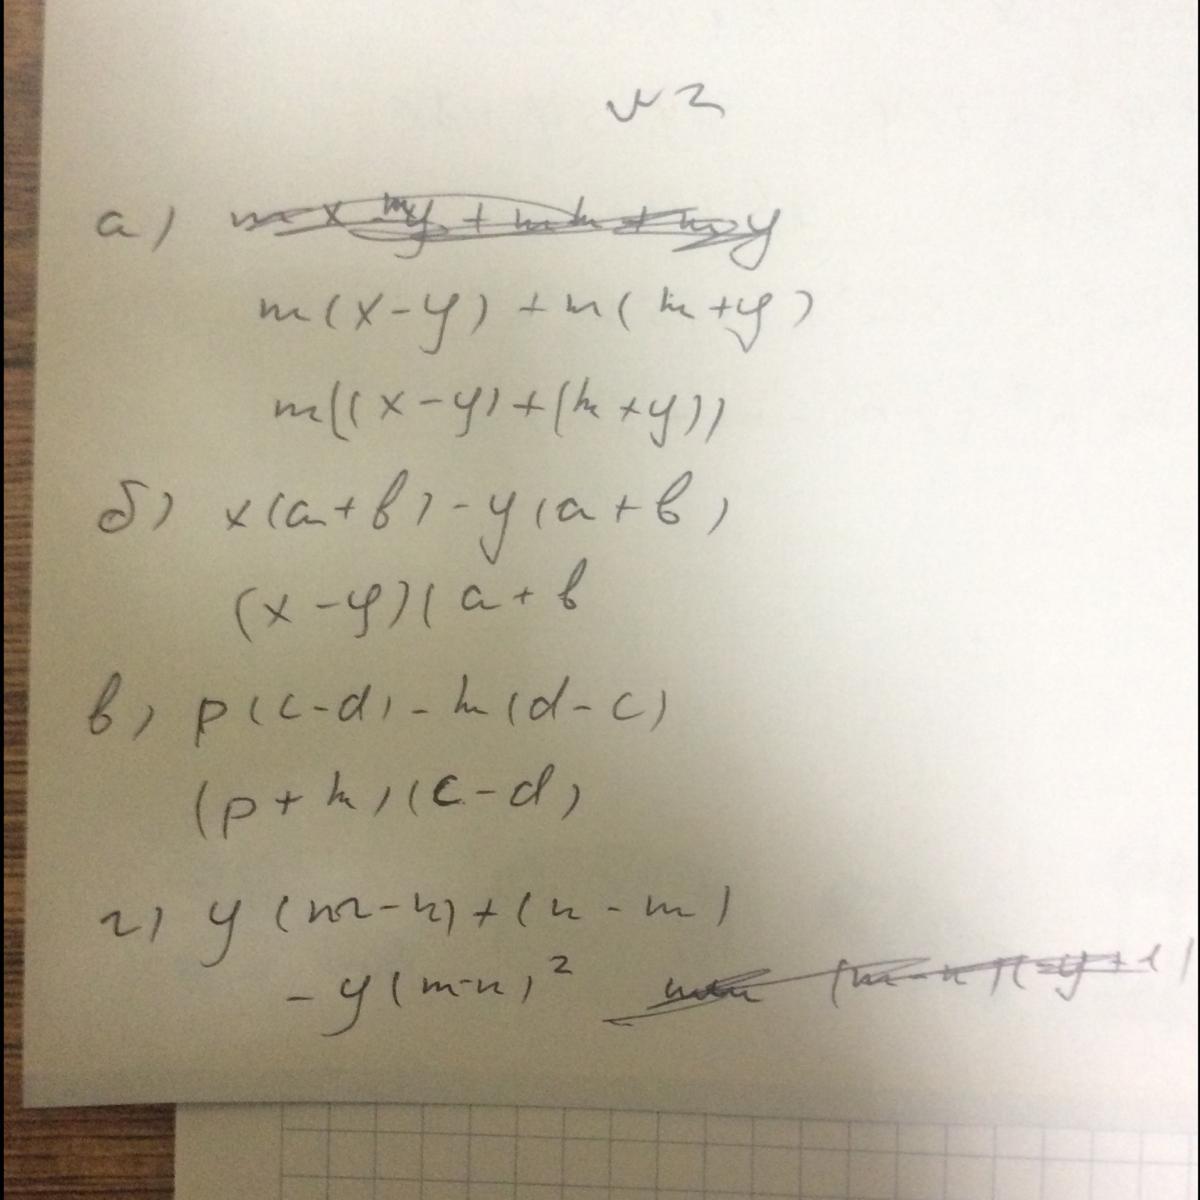 №2
а)
m(x-y)+m(n+y)
m((x-y)+(n+y))
б) x(a+b)-y(a+b)
(x-y)(a+b
в) p(c-d)-n(d-c)
(p+n)(c-d)
г) y(m-n)+(n-m)
-y(m-n)²